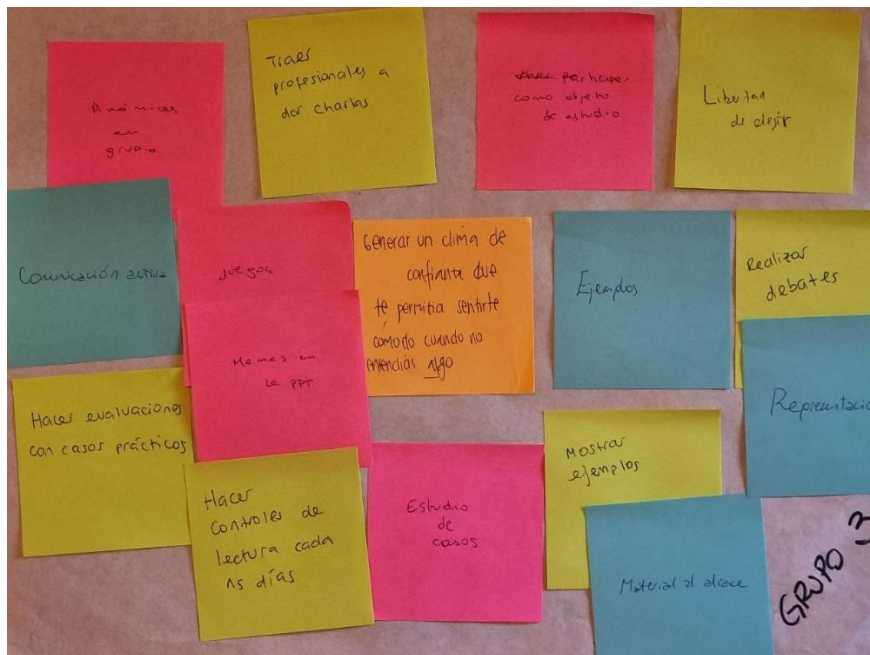 Dinámicas
en
grupo
Traer
profesionales a
dar charlas
participar
como objeto
de estudio
Libertad
de elegir
Comunicación activa
Juegos
Generar un clima de
confianza que
te permitia sentirte
cómodo cuando no
entendías algo
Ejemplos
Realizar
debates
Memes en
la PPT
Representació
Hacer evaluaciones
con casos prácticos
Hacer
controles de
lectura cada
15 días
Estudio
de
casos
Mostrar
ejemplos
Material al alcace
GRUPO 3